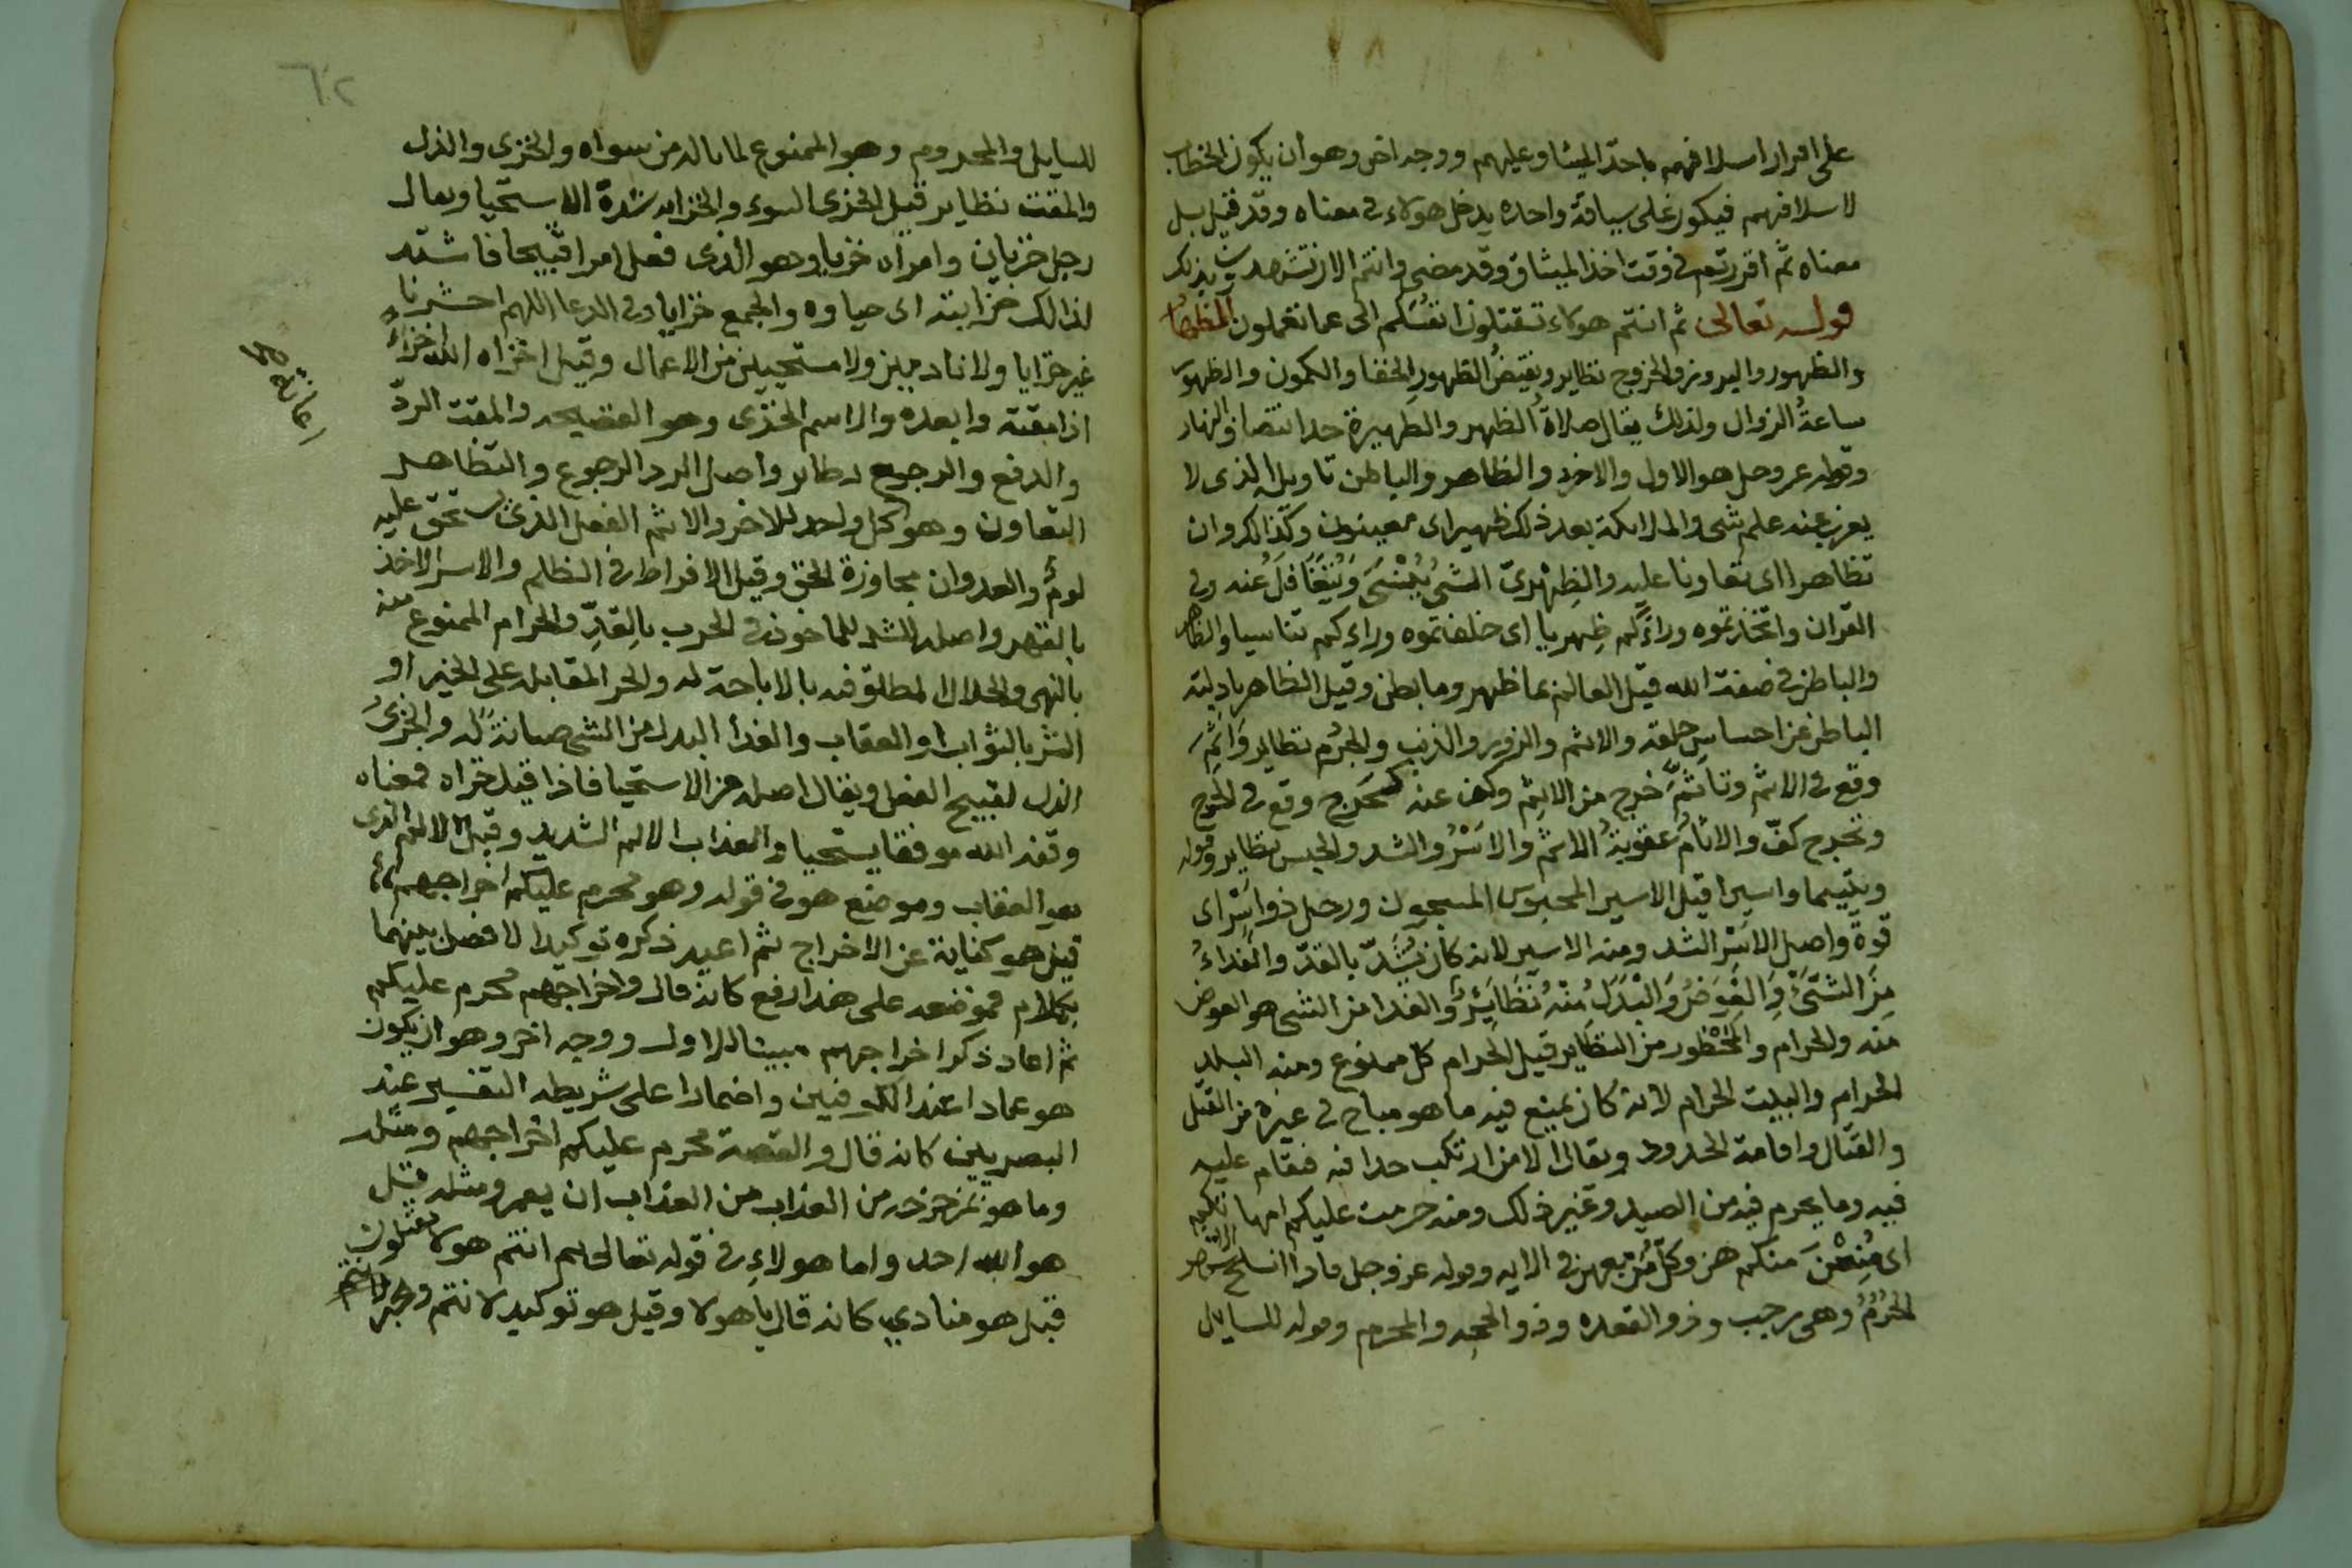 على اقرار اسلافهم باخذ الميثاق عليهم ووجه اخر وهو ان يكون الخطاب
لاسلافهم فيكون على سياقة واحده يدخل هولاء في معناه وقد قيل بل
معناه ثم اقررتم في وقت اخذ الميثاق وقد مضى وانتم الان تشهدون بذلك
قوله تعالى ثم انتم هولاء تقتلون انفسكم الى عما تعملون
والظهور والبروز والخروج نظاير ونقيض الظهور الخفا والكمون والظهر
ساعةُ الزوال ولذلك يقال صلاة الظهر والظهيرة حد انتصاف النهار
وقوله عز وجل هو الاول والاخر والظاهر والباطن تاويله الذي لا
يعزب عنه علم شي والملايكة بعد ذلك ظهير اى معينون وكذلك وان
تظاهرا اى تعاونا عليه والظِهْرىّ الشي يُنْسَى وَيُتَغَافَلُ عنه وفي
القران واتخذتموه وراءكم ظِهريا اى خلفتموه وراءكم تناسيا والظاهر
والباطن في صفة الله قيل العالم بما ظهر وما بطن وقيل الظاهر بادلته
الباطن عن احساس خلقه والاثم والزور والذنب والجُرم نظاير وَاَثِمَ
وقع في الاثم وتاثمَّ خرج من الاثم وكف عنه كحَرِج وقع في الحرج
وتحرج كفّ والاثامُ عقوبةُ الاثم والاَسْرُ والشد والحبس نظاير وقوله
ويتيما واسيرا قيل الاسير المحبوس المسجون ورجل ذو اَسْر اى
قوة واصل الاَسْر الشد ومنه الاسير لانه كان يُشَدّ بالقدّ والفداءُ
مِنَ الشَّيْءِ وَالعِوَضُ وَالْبَدَلُ مْنْهُ نَظَايِرُ والفدا من الشي هو العوض
منه والحرام والمَحْظور من النظاير قيل الحرام كل ممنوع ومنه البلد
الحرام والبيت الحرام لانه كان يمنع فيه ما هو مباح في غيره من القتل
والقتال واقامة الحدود ويقال الا من ارتكب حدا فيه فيقام عليه
فيه وما يحرم فيه من الصيد وغير ذلك ومنه حرمت عليكم امهاتكم
اى مُنِعْنَ منكم هن وكلّ من معهن في الايه وقوله عز وجل فاذا انسلخ الاشهر
الحُرُمُ وهي رجب وذو القعده وذو الحجه والمحرم وقوله للسايل
٦٢
للسايل والمحروم وهو الممنوع لما ناله من سواه والخزى والذل
والمقت نظاير قيل الخزى السوء والخزايه شدّة الاستحيا ويقال
رجل خزيان وامراه خزيا وهو الذى فعل امرا قبيحا فاشتد
لذالك خزايته اى حياوه والجمع خزايا وفي الدعا اللهم احشرنا
غير خزايا ولا نادمين ولا مستحيين من الاعمال وقيل اخزاه الله خزاءً
اذا مقته وابعده والاسم الخزى وهو الفضيحه والمقت الردّ
والدفع والرجيع نظاير واصل الرد الرجوع والتظاهر
التعاون وهو كل واحد للاخر والاثم الفعل الذى يستحق عليه
لومٌ والعدوان مجاوزة الحق وقيل الافراط في الظلم والاسر الاخذ
بالقهر واصله الشد للماخوذ في الحرب بالقِدِّ والحرام الممنوع منه
بالنهى والحلال المطلق فيه بالاباحة له والجزا المقابله على الخير او
الشر بالثواب او العقاب والفدا البدل من الشي صيانةً له والخزىُ
الذل لقبيح الفعل ويقال اصله من الاستحيا فاذا قيل خزاه فمعناه
وقفه الله موقفا يستحيا والعذاب الالم الشديد وقيل الالم الذى
هو العقاب وموضع هو في قوله وهو محرم عليكم اخراجهم
قيل هو كناية عن الاخراج ثم اعيد ذكره توكيدا لا فصل بينهما
بكلام فموضعه على هذا رفع كانه قال واخراجهم محرم عليكم
ثم اعاد ذكر اخراجهم مبينا للاول ووجه اخر وهو ان يكون
هو عمادا عند الكوفيين واضمارا على شريطه التفسير عند
البصريين كانه قال والقصة محرم عليكم اخراجهم ومثله
وما هو بمزحزحه من العذاب من العذاب ان يعمر ومثله قيل
هو الله احد واما هولاءِ في قوله تعالى ثم انتم هولا تقتلون
قيل هو منادى كانه قال يا هولا وقيل هو توكيد لانتم وخبر